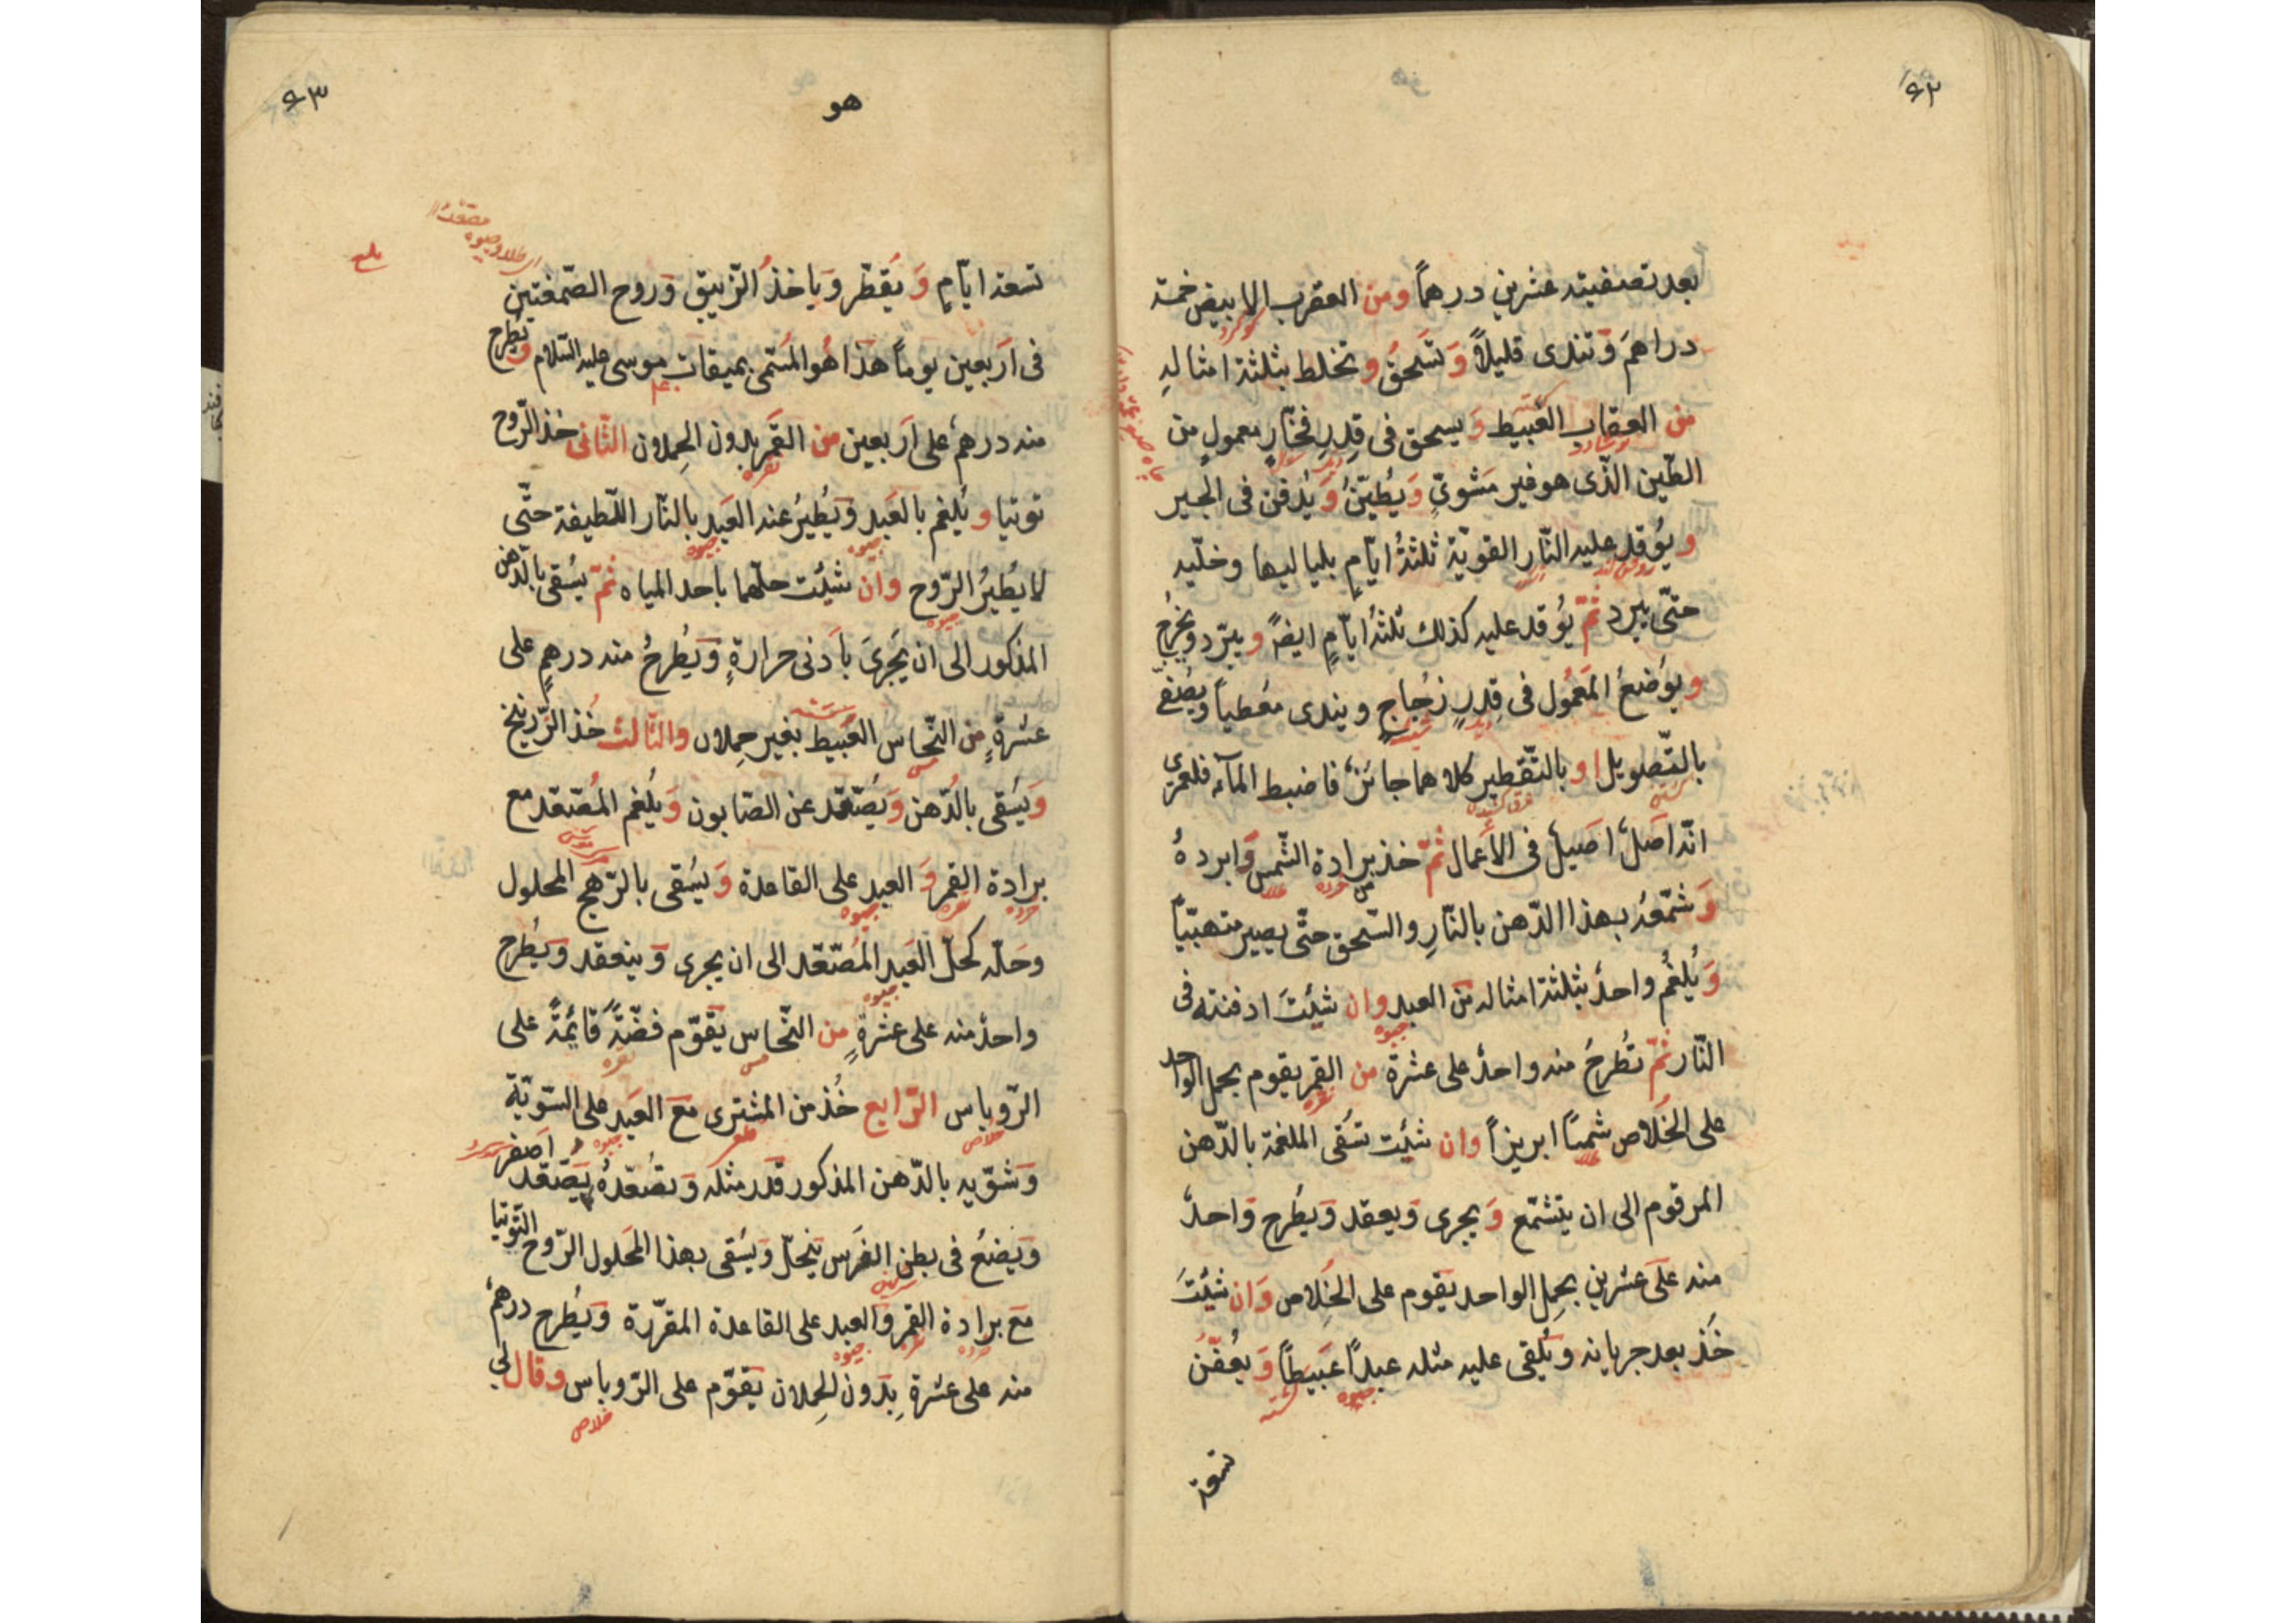 ٤٢
بعد تصفيته عشرين درهماً ومن العقرب الابيض خمسة
دراهمَ وتندى قليلاً وتسحقُ وتخلط بثلثة امثاله
من العقاب العَبيط ويسحق فى قِدرِ فخّارٍ معمولٍ من
الطّين الّذى هو غير مَشوىٍّ وَيُطيّنُ وَيُدفن فى الجير
ويُوقد عليه النّار القويّة ثلثةُ ايّامٍ بلياليها وخلّيه
حتّى يبرد ثمّ يُوقد عليه كذلك ثلثةُ ايّامٍ ايضً ويبرّد ويخرج
ويوَضعُ المَعمُول فى قِدرٍ زُجاجٍ ويندى مُغطياً ويُصَفّى
بالتّصويل او بالتّقطير كلاهما جائزٌ فاضبط المآء فلعمرى
انّه اصَلٌ اصَيلٌ فى الأعمال ثمّ خذ برادة الشّمس وَابردهُ
وَشمّعهُ بهذا الدّهن بالنّارِ والسّحق حتّى يصير متهبّياً
وَيُلغَمُ واحدٌ بثلثة امثاله من العبد وان شئتَ ادفنته فى
النّار ثمّ تُطرحُ منه واحدٌ على عشرة من القمر يقوم بحمل الواحد
على الخَلاص شمساً ابريزاً وان شئت تسُقى الملغمة بالدّهن
المرقوم الى ان يتشمّع وَيجرى وَيعقد وَيطُرح وَاحدٌ
منه على عشرين بحمل الواحد يقوم على الخَلاص وَان شئتَ
خُذ بعد جريانه ويُلقى عليه مثله عبدًا عَبَيطاً وَيعُفّنُ
تسعة
٤٣
هو
بلغ
تسعة ايّامٍ وَيُقطّر وَياخذُ الزّيبق وَروح الصّمغتين
فى اَربعين يوماً هذا هُو المُسَمّى بميقات موسى عليه السّلام وتُطرح
منه درهمٌ على اَربعين من القمَر بدون الحِملان الثّانى خذ الرّوح
توتيا ويُلغم بالعَبد وَيُطيرُ عنه العَبد بالنّار اللّطيفة حتّى
لا يُطيرُ الرّوح وان شئت حلّهما باحد المياه ثمّ يسُقى بالدّهن
المذكور الى ان يَجرىَ باَدنى حرارةٍ وَيُطرحُ منه درهمٍ على
عشرةٍ من النّحاس العَبيط بغير حِملان والثّالث خُذ الزّرنيخ
وَيسَقى بالدّهن وَيُصّعد عن الصّابون وَيُلغم المُصّعد مع
برادة القمر وَ العبد على القاعدة وَيسُقى بالرّهج المحلول
وحَلّه كحلّ العَبد المُصّعّد الى ان يجرى وَينعقد ويُطرح
واحدٌ منه على عشرةٍ من النّحاس يقوّم فضّةً قائمةً على
الرّوباس الرّابع خُذ من المشترى مَعَ العَبد على السّويّة
وَشوّيه بالدّهن المذكور قدر مثله وَتصُعّدهُ يصّعّد اَصفر
وَيضعُ فى بطن الفَرس يَنحلّ وَيسُقى بهذا المَحلول الرّوح التّوتيا
مَع برادة القمر وَالعبد على القاعدة المقرّرة وَيُطرح درهمٌ
منه على عشرةِ بِدون الحِملان يقوّم على الرّوباس وقال لى
خلاص